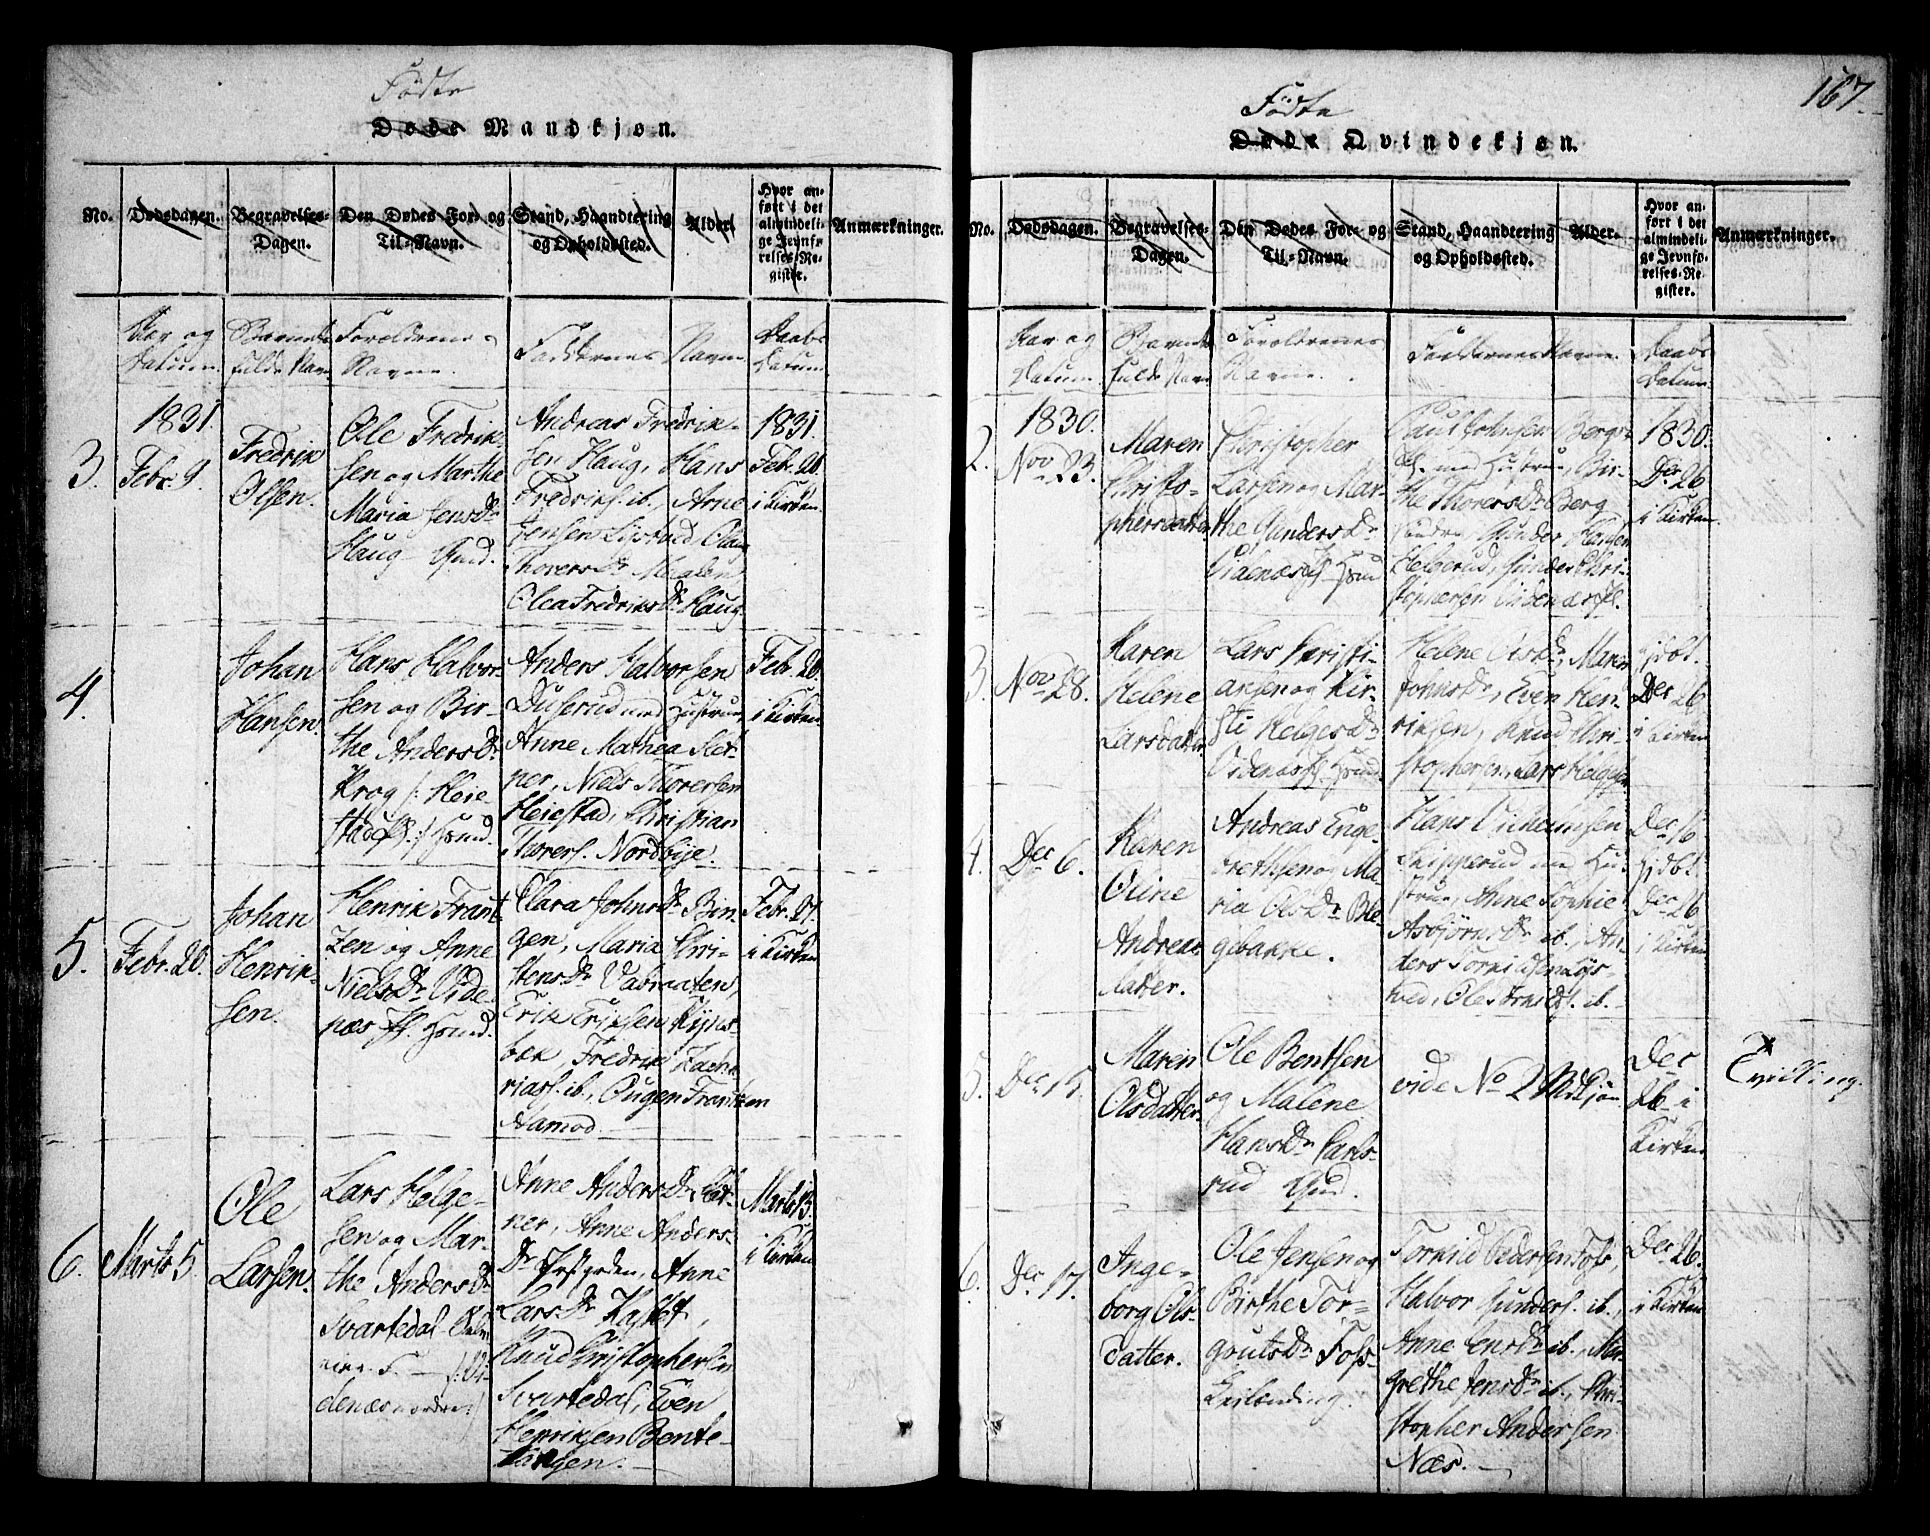 Födte
Døde Mandkjøn.
No.
Dødsdagen.
Begravelses-
Dagen.
Den Dødes For- og
Til-Navn.
Stand, Haandtering
og Opholdssted.
Alder.
Hvor an-
ført i det
almindeli-
ge Jevnfø-
relses-Re-
gister.
Anmærkninger.
Aar og
Datum.
Barnets
fulde Navn
Forældrenes
Navne.
Faddernes Navne
Daabs
Datum.
3.
1831.
Febr. 9.
Fredrik
Olsen.
Ole Fredrik-
sen og Marthe
Maria Jensdr
Haug Gmd.
Andreas Fredrik-
sen Haug, Hans
Fredriks. ib., Arne
Jensen
Thorersdr
Olea Fredriksdr Haug
1831.
Febr. 26
i Kirken
4.
Johan
Hansen.
Hans Halvor-
sen og Bir-
the Andersdr
Krog /: Heie
stad :/ Hsmd.
Anders Halvorsen
Duserud med Hustrue,
Anne Mathea
Niels Thoresen
Heiestad, Christian
Thorers. Nordbye.
Febr. 20.
i Kirken
5.
Febr. 20.
Johan
Henrik-
sen.
Henrik Frant-
zen og Anne
Nielsdr Vide
næs Hsmd.
Clara Johnsdr Bin-
gen, Maria Chri-
stensdr Vabraaten,
Erik Eriksen Kyns-
bæk, Fredrik Zacha
rias. ib., Ougen Frantzen
Aamod.
Febr. 27.
i Kirken
6.
Marts 5
Ole
Larsen.
Lars Helge-
sen og Mar-
the Andersdr
Svartedal
denæs nordre :/
Anne Andersdr
ner, Anne Anders-
dr Præstgrden, Anne
Larsdr Kastet,
Knud Christophersen
Svartedal, Even
Henriksen Bente-
Marts 13.
i Kirken
167.
Födte
Døde Qvindekjøn.
No.
Dødsdagen.
Begravelses-
Dagen.
Den Dødes For- og
Til-Navn.
Stand, Haandtering
og Opholdssted.
Alder.
Hvor an-
ført i det
almindeli-
ge Jevnfø-
relses-Re-
gister.
Anmærkninger.
Aar og
Datum.
Barnets
fulde Navn
Forældrenes
Navne.
Faddernes Navne.
Daabs
Datum.
2.
1830.
Nov 23.
Maren
Christo-
phersdatter
Christopher
Larsen og Mar-
the Gundersdr
Videnæs
Paul Johnsen Bergs-
med Hustrue, Bir-
the Thorersdr Berg
söndre, Gunder Hansen
Helgerud, Gunder Chri-
stophersen Videnæs
1830.
Dec 26
i Kirken
3.
Nov 28.
Karen
Helene
Larsdatter
Lars Christi-
ansen og Kir-
sti Helgesdr
Videnæs Hsmd
Helene Olsdr, Maren
Johnsdr, Even Hen-
riksen, Knud Chri-
stophersen, Lars Helgesen
hjdøbt.
Dec 26
i Kirken
4.
Dec 6.
Karen
Oline
Andreas
datter.
Andreas Enge-
brethsen og Ma-
ria Olsdr Ble-
gebakke.
Hans Vilhelmsen
Skipperud med Hu-
strue, Anne Sophie
Asbjørnsdr ib., An-
ders Torkildsen Lys-
hved, Ole Torkilds. ib.
Dec 16
hjdøbt
Dec 26
i Kirken
5.
Dec 15.
Maren
Olsdatter
Ole Bentsen
og Malene
Hansdr Carls-
rud Gmd.
vide No 2 Mdkjön
Dec
26 i
Kirken
Tvilling.
6.
Dec 17.
Inge-
borg Ols-
datter.
Ole Jensen og
Birthe Tor-
grutsdr Foss-
Torkild Pedersen Foss,
Halvor Gunders. ib.,
Anne Jensdr ib., Mar-
grethe Jensdr ib., Chri-
stopher Andersen
Næs.
Dec 26.
i Kirken